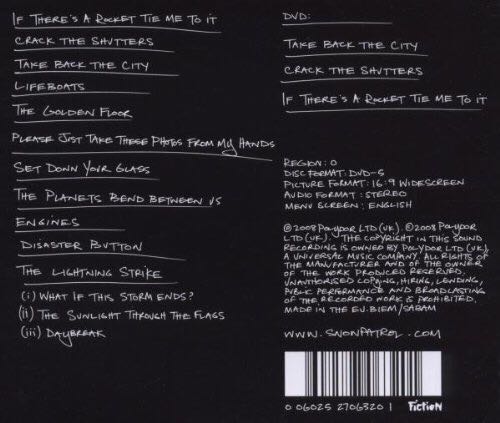 IF THERE'S A ROCKET TIE ME TO IT
CRACK THE SHUTTERS
TAKE BACK THE CITY
LIFEBOATS
THE GOLDEN FLOOR
PLEASE JUST TAKE THESE PHOTOS FROM MY HANDS
SET DOWN YOUR GLASS
THE PLANETS BEND BETWEEN US
ENGINES
DISASTER BUTTON
THE LIGHTNING STRIKE
(i) WHAT IF THIS STORM ENDS?
(ii) THE SUNLIGHT THROUGH THE FLAGS
(iii) DAYBREAK
DVD:
TAKE BACK THE CITY
CRACK THE SHUTTERS
IF THERE'S A ROCKET TIE ME TO IT
REGION: 0
DISC FORMAT: DVD-5
PICTURE FORMAT: 16:9 WIDESCREEN
AUDIO FORMAT: STEREO
MENU SCREEN: ENGLISH
℗2008 POLYDOR LTD (UK). ©2008 POLYDOR
LTD (UK). THE COPYRIGHT IN THIS SOUND
RECORDING IS OWNED BY POLYDOR LTD (UK),
A UNIVERSAL MUSIC COMPANY. ALL RIGHTS OF
THE MANUFACTURER AND OF THE OWNER
OF THE WORK PRODUCED RESERVED.
UNAUTHORISED COPYING, HIRING, LENDING,
PUBLIC PERFORMANCE AND BROADCASTING
OF THE RECORDED WORK IS PROHIBITED.
MADE IN THE EU. BIEM/SABAM
WWW.SNOWPATROL.COM
0 06025 2706320 1 Fiction